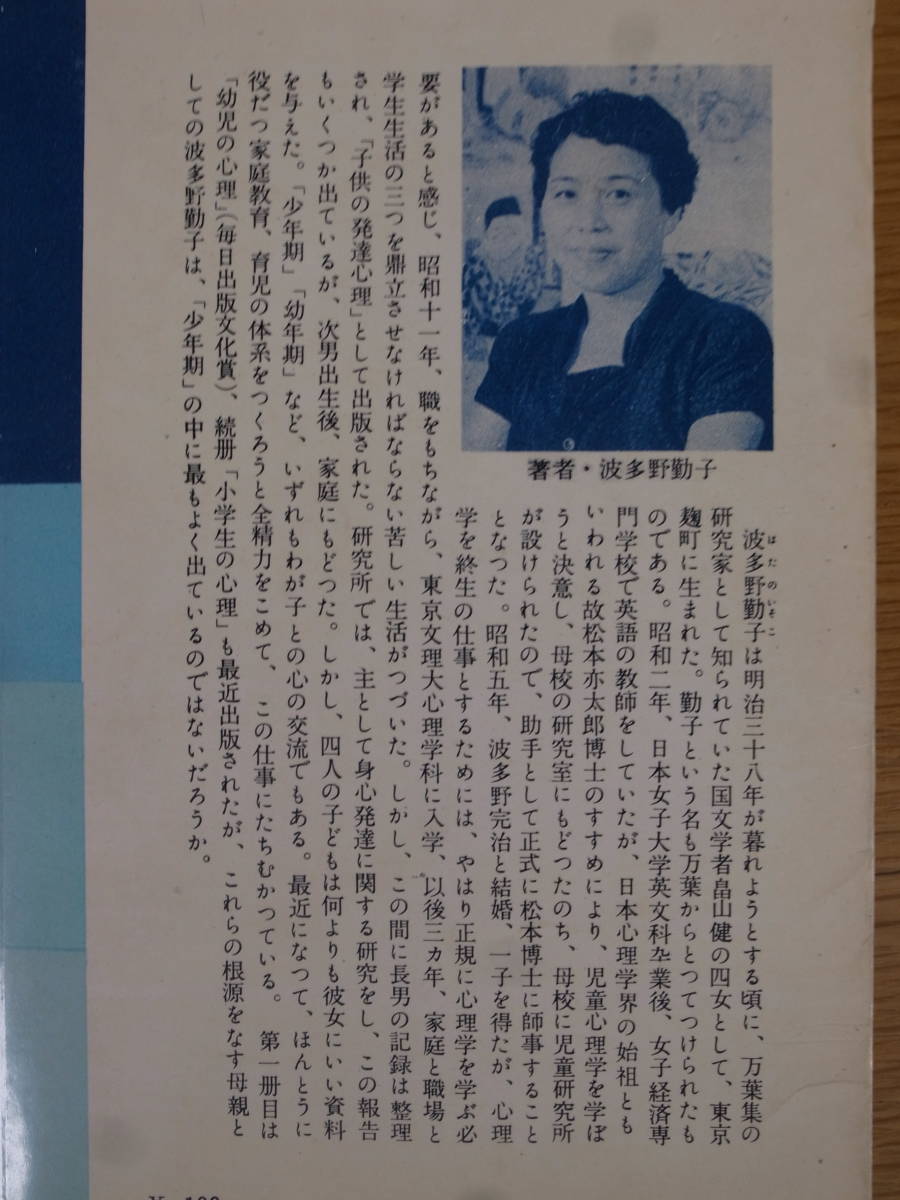 著者・波多野勤子
波多野勤子は明治三十八年が暮れようとする頃に、万葉集の
はたのいそこ
研究家として知られていた国文学者畠山健の四女として、東京
麹町に生まれた。勤子という名も万葉からとつてつけられたも
のである。昭和二年、日本女子大学英文科卒業後、女子経済専
門学校で英語の教師をしていたが、日本心理学界の始祖とも
いわれる故松本亦太郎博士のすすめにより、児童心理学を学ぼ
うと決意し、母校の研究室にもどつたのち、母校に児童研究所
が設けられたので、助手として正式に松本博士に師事すること
となつた。昭和五年、波多野完治と結婚、一子を得たが、心理
学を終生の仕事とするためには、やはり正規に心理学を学ぶ必
要があると感じ、昭和十一年、職をもちながら、東京文理大心理学科に入学、以後三カ年、家庭と職場と
学生生活の三つを鼎立させなければならない苦しい生活がつづいた。しかし、この間に長男の記録は整理
され、「子供の発達心理」として出版された。研究所では、主として身心発達に関する研究をし、この報告
もいくつか出ているが、次男出生後、家庭にもどつた。しかし、四人の子どもは何よりも彼女にいい資料
を与えた。「少年期」「幼年期」など、いずれもわが子との心の交流でもある。最近になつて、ほんとうに
役だつ家庭教育、育児の体系をつくろうと全精力をこめて、この仕事にたちむかつている。第一册目は
「幼児の心理」(毎日出版文化賞)、続册「小学生の心理」も最近出版されたが、これらの根源をなす母親と
しての波多野勤子は、「少年期」の中に最もよく出ているのではないだろうか。